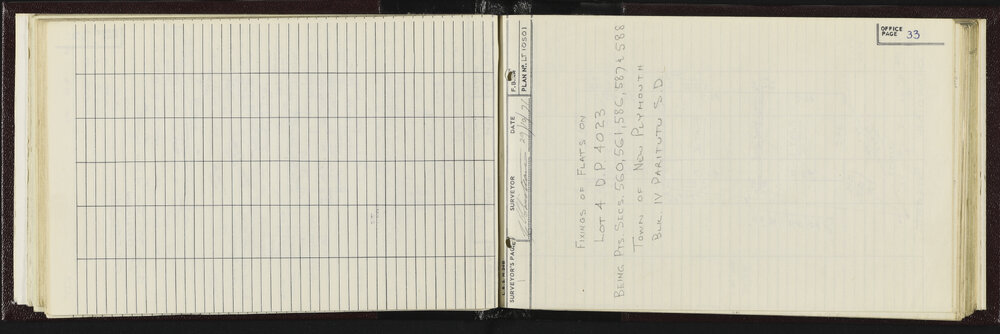 OFFICE PAGE 33
SURVEYOR'S PAGE 1
SURVEYOR
DATE 29/10/71
F. B.
PLAN No. LT 10501
L. & S. H 30 B
FIXINGS OF FLATS ON
LOT 4 D.P 4023
BEING PTS SECS. 560, 561, 586, 587 & 588
TOWN OF NEW PLYMOUTH
BLK. IV PARITUTU S.D.